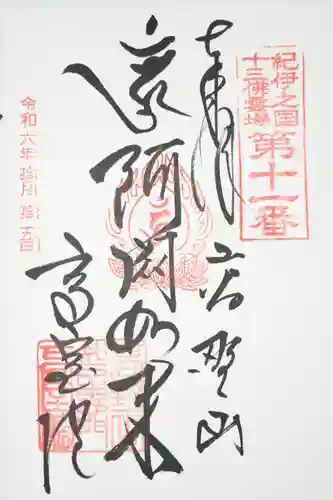 紀伊之国
十三佛霊場
第十一番
奉拝
高野山
阿閦如来
高室院
令和六年拾月拾五日